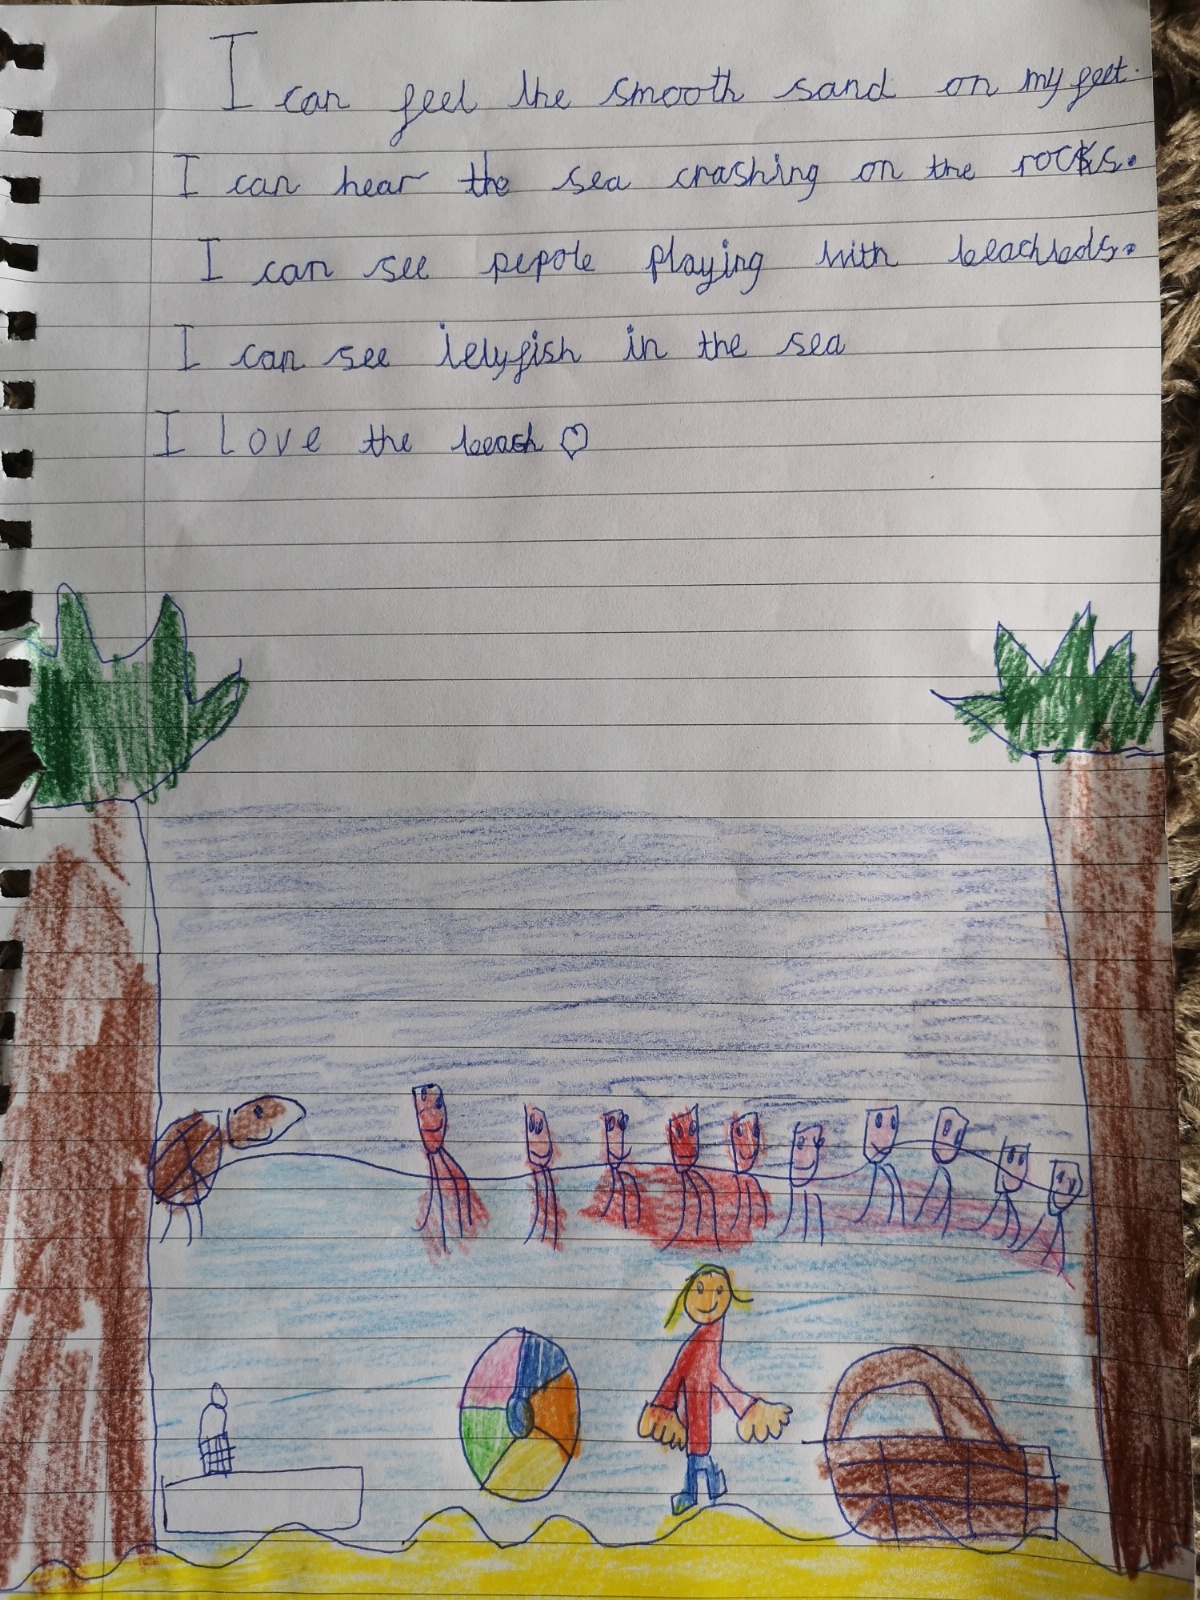 I can feel the smooth sand on my feet.
I can hear the sea crashing on the rocks.
I can see pepole playing with beachbods.
I can see ielyfish in the sea
I Love the beach ♡